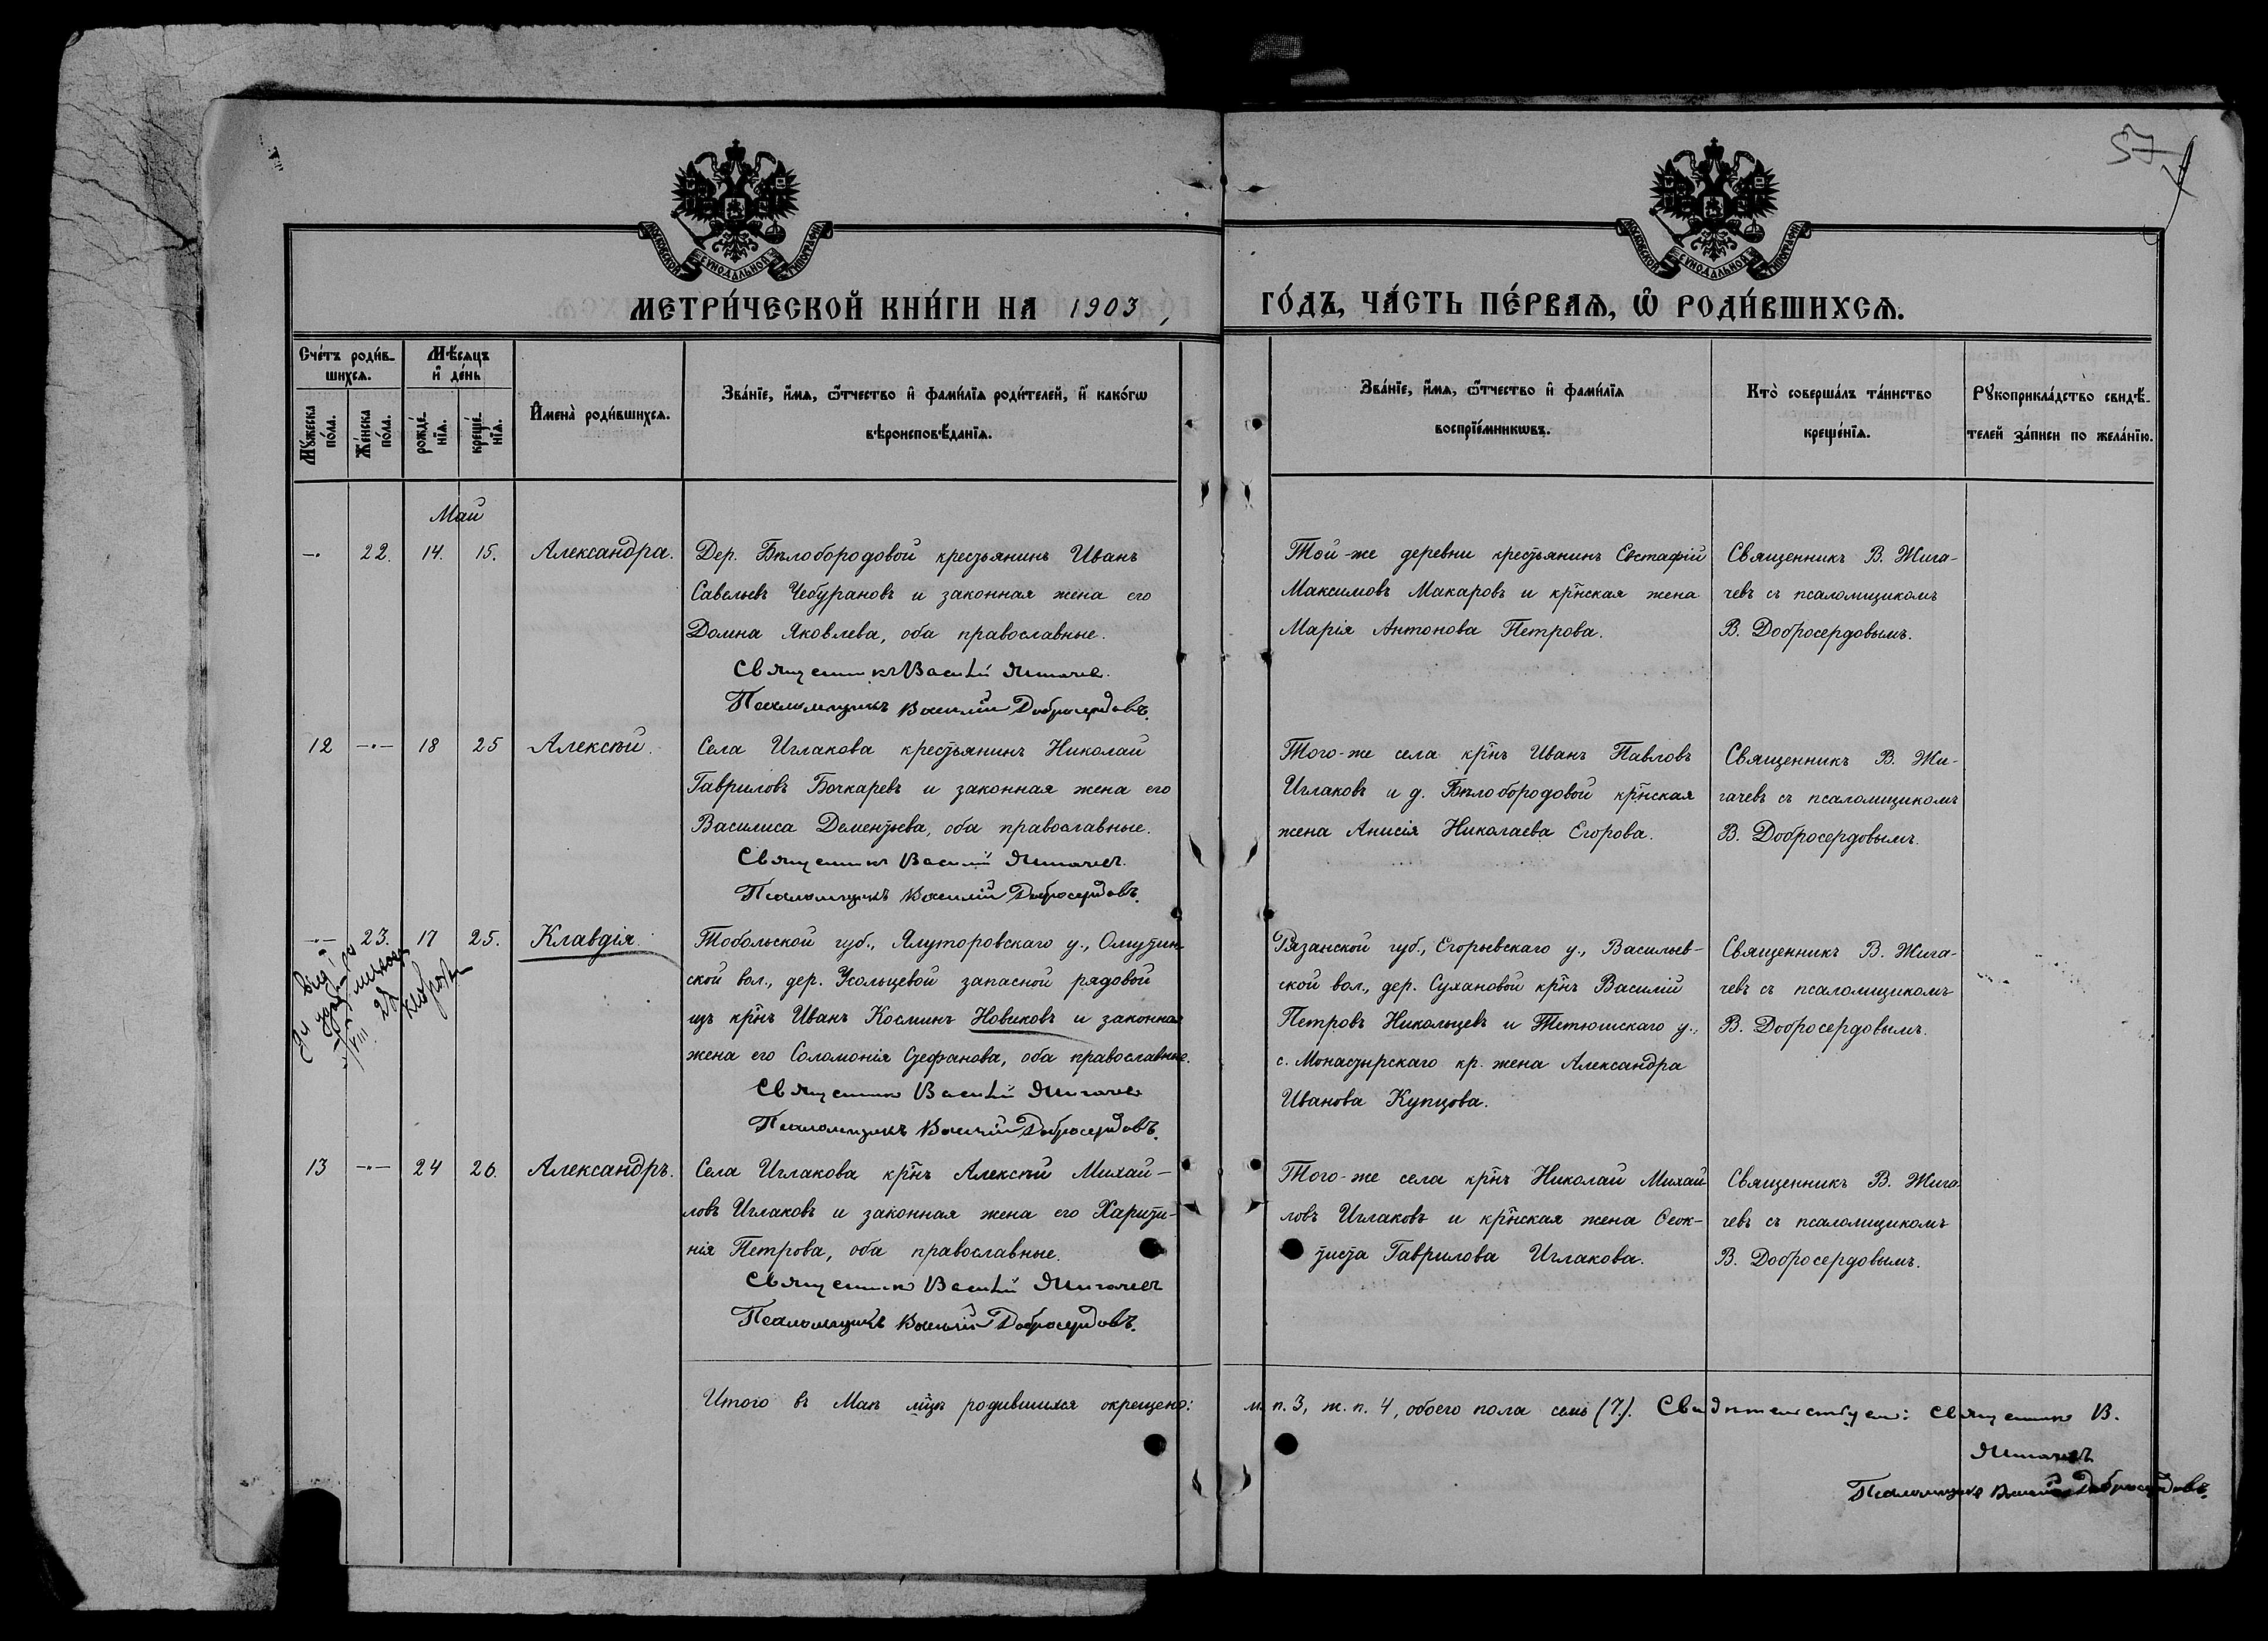 57
МОСКОВСКОЙ СУНОДАЛЬНОЙ ТИПОГРАФІИ
МОСКОВСКОЙ СУНОДАЛЬНОЙ ТИПОГРАФІИ
МЕТРИ́ЧЕСКОЙ КНИ́ГИ НА 1903
ГО́ДЪ, ЧА́СТЬ ПЕ́РВАѦ, Ѡ҆ РОДИ́ВШИХСѦ.
Сче́тъ роди́в-
шихсѧ.
Мѣ́сѧцъ
и҆ де́нь
Мꙋ́жеска
по́ла.
Же́нска
по́ла.
рожде́-
нїѧ.
креще́-
нїѧ.
И҆мена̀ роди́вшихсѧ.
Зва́нїе, и҆́мѧ, ѻ҆́тчество и҆ фами́лїѧ роди́телей, и҆ како́гѡ
вѣроисповѣ́данїѧ.
Зва́нїе, и҆́мѧ, ѻ҆́тчество и҆ фами́лїѧ
воспрїе́мникѡвъ.
Кто̀ соверша́лъ та́инство
креще́нїѧ.
Рꙋкоприкла́дство свидѣ́-
телей за́писи по жела́нїю.
Май
—. 22. 14. 15. Александра.
Дер. Бѣлобородовой крестьянинъ Иванъ
Савельевъ Чебурановъ и законная жена его
Домна Яковлева, оба православные.
Священникъ Василій Жигачев.
Псаломщикъ Василій Добросердовъ.
Той-же деревни крестьянинъ Евстафій
Максимовъ Макаровъ и кр̃нская жена
Марія Антонова Петрова.
Священникъ В. Жига-
чевъ съ псаломщикомъ
В. Добросердовымъ.
12 —"— 18 25 Алексѣй.
Села Иглакова крестьянинъ Николай
Гавриловъ Бочкаревъ и законная жена его
Василиса Дементьева, оба православные.
Священникъ Василій Жигачев.
Псаломщикъ Василій Добросердовъ.
Того-же села кр̃нъ Иванъ Павловъ
Иглаковъ и д. Бѣлобородовой кр̃нская
жена Анисія Николаева Егорова.
Священникъ В. Жи-
гачевъ съ псаломщикомъ
В. Добросердовымъ.
—"— 23. 17 25. Клавдія.
Тобольской губ., Ялуторовскаго у., Омутин-
ской вол., дер. Усольцевой запасной рядовой
изъ кр̃нъ Иванъ Косминъ Новиковъ и законная
жена его Соломонія Стефанова, оба православные.
Священникъ Василій Жигачев
Псаломщикъ Василій Добросердовъ.
Рязанской губ., Егорьевскаго у., Васильев-
ской вол., дер. Сухановой кр̃нъ Василій
Петровъ Никольцевъ и Тетюшскаго у.,
с. Монастырскаго кр. жена Александра
Иванова Купцова.
Священникъ В. Жига-
чевъ съ псаломщикомъ
В. Добросердовымъ.
13 —"— 24 26. Александръ.
Села Иглакова кр̃нъ Алексѣй Михай-
ловъ Иглаковъ и законная жена его Харити-
нія Петрова, оба православные.
Священникъ Василій Жигачев
Псаломщикъ Василій Добросердовъ.
Того-же села кр̃нъ Николай Михай
ловъ Иглаковъ и кр̃нская жена Ѳеок-
тиста Гаврилова Иглакова.
Священникъ В. Жига-
чевъ съ псаломщикомъ
В. Добросердовымъ.
Итого въ Маѣ м̃цѣ родившихся окрещено:
м. п. 3, ж. п. 4, обоего пола семь (7). Свидѣтельствуем: священникъ В.
Жигачевъ
Псаломщикъ Василій Добросердовъ.